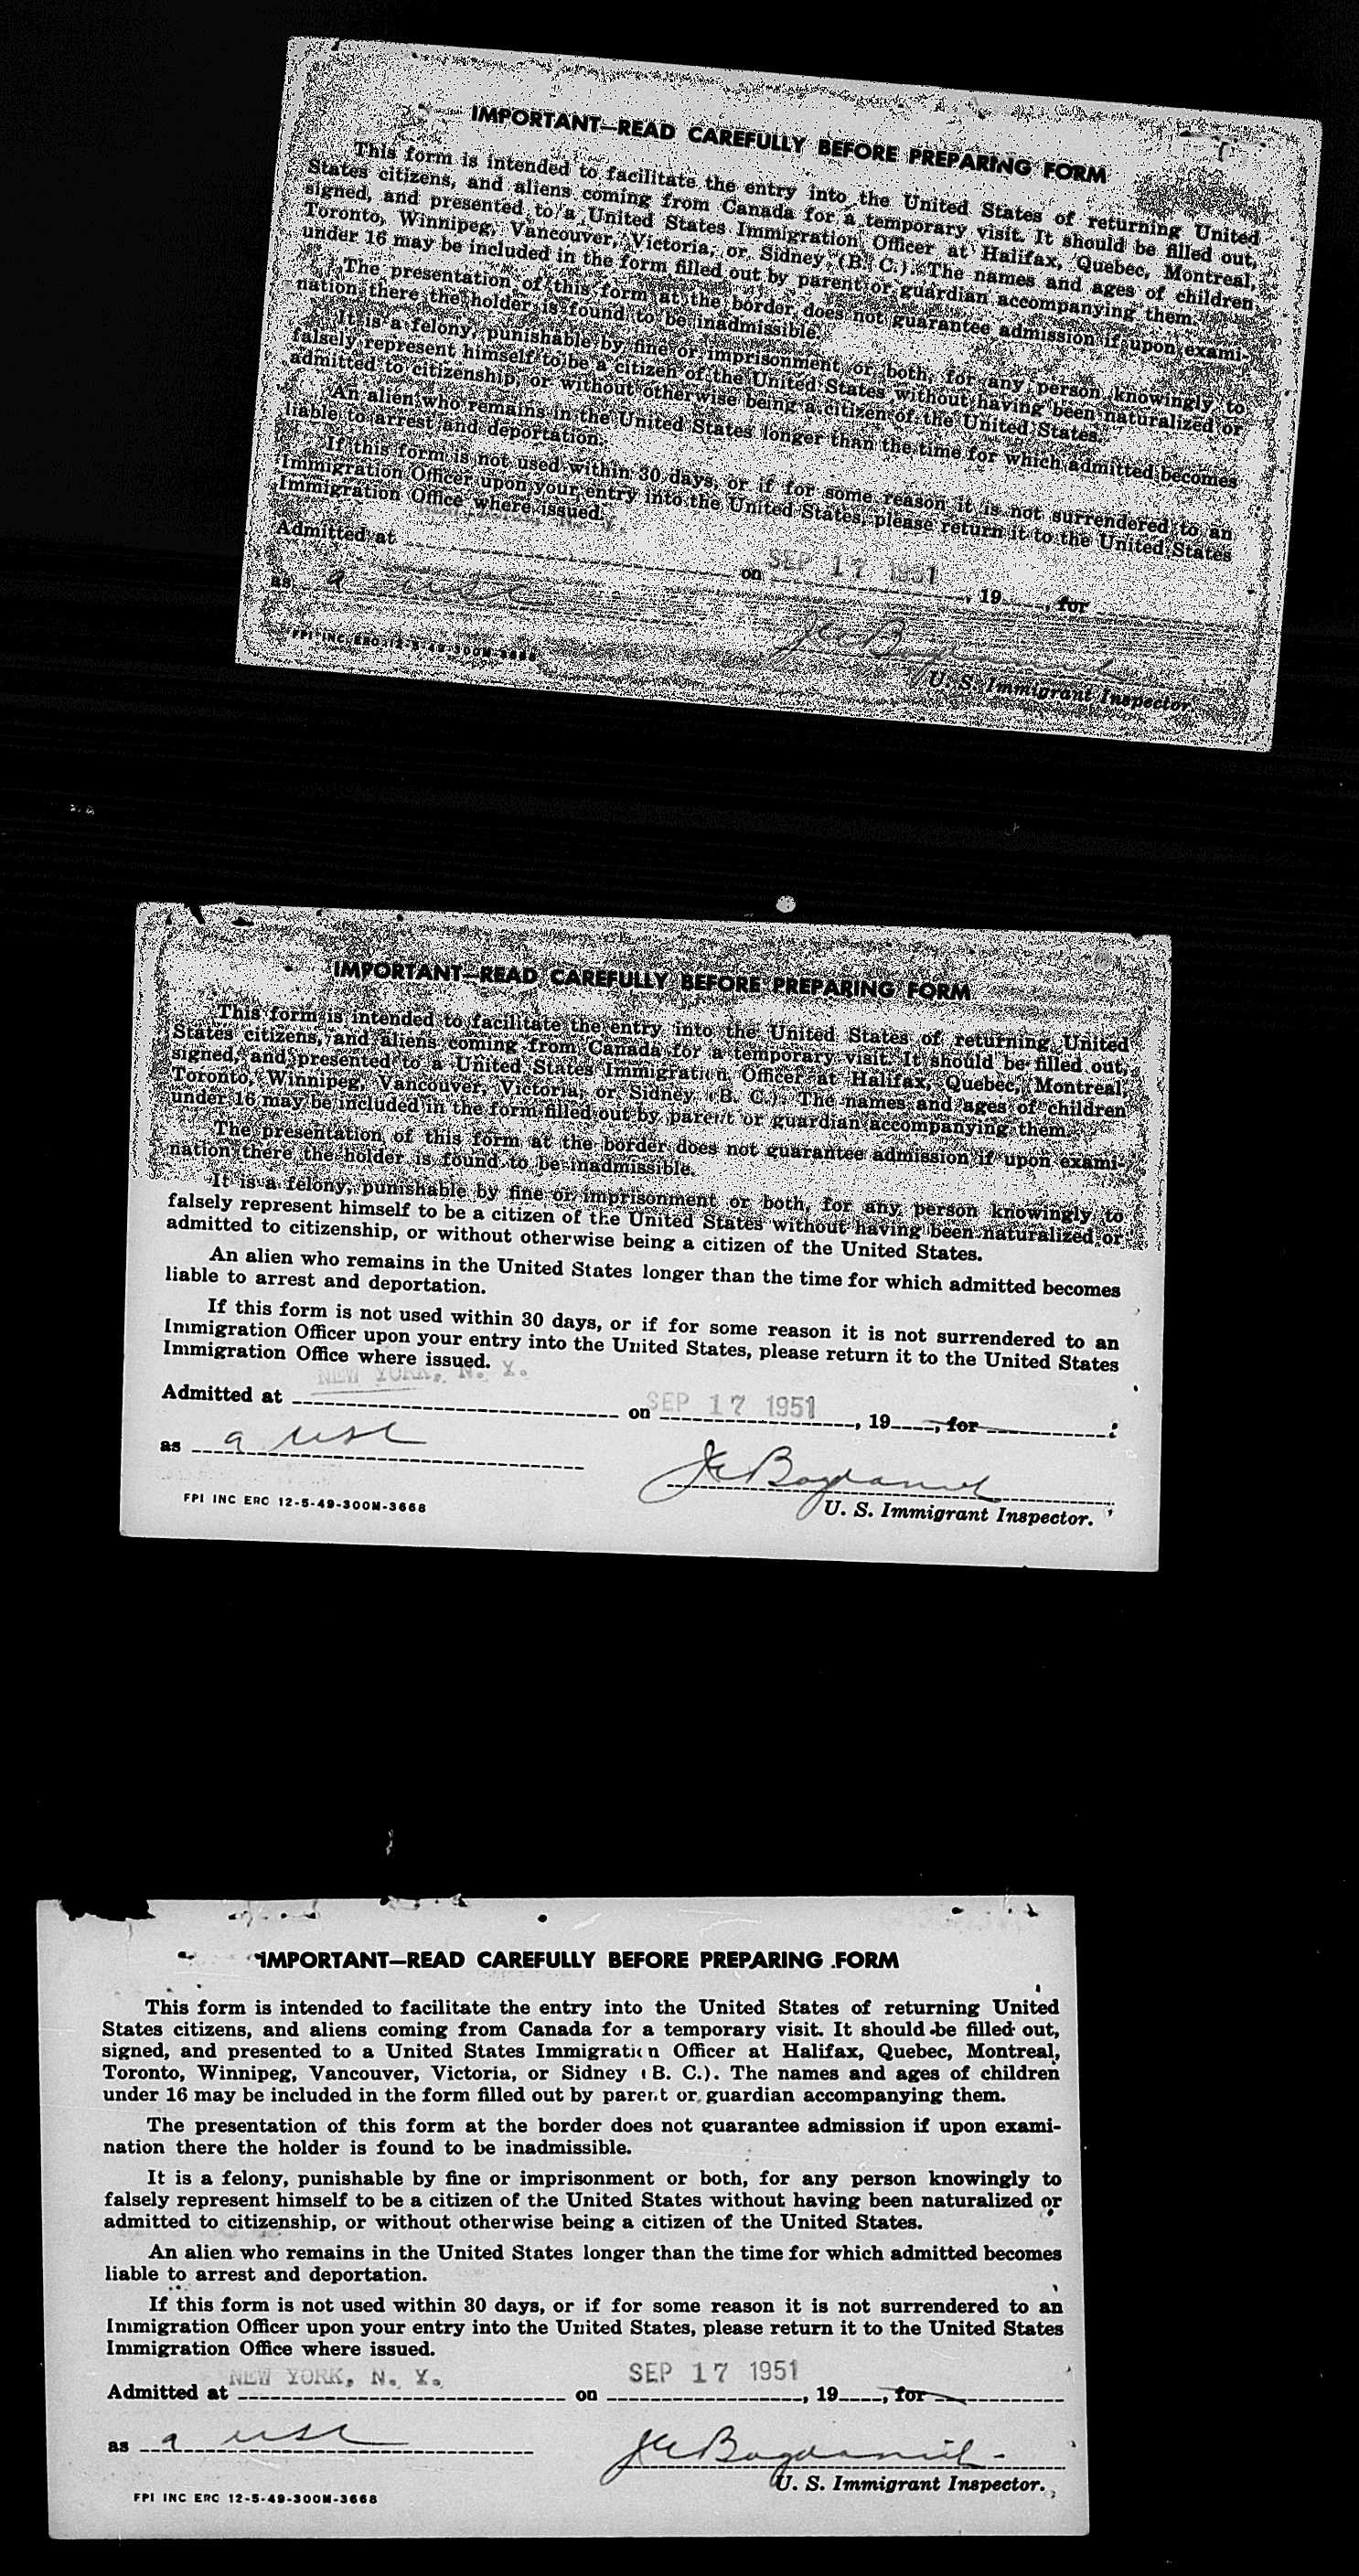 IMPORTANT—READ CAREFULLY BEFORE PREPARING FORM
This form is intended to facilitate the entry into the United States of returning United
States citizens, and aliens coming from Canada for a temporary visit. It should be filled out,
signed, and presented to a United States Immigration Officer at Halifax, Quebec, Montreal,
Toronto, Winnipeg, Vancouver, Victoria, or Sidney (B. C.). The names and ages of children
under 16 may be included in the form filled out by parent or guardian accompanying them.
The presentation of this form at the border does not guarantee admission if upon exami-
nation there the holder is found to be inadmissible.
It is a felony, punishable by fine or imprisonment or both, for any person knowingly to
falsely represent himself to be a citizen of the United States without having been naturalized or
admitted to citizenship, or without otherwise being a citizen of the United States.
An alien who remains in the United States longer than the time for which admitted becomes
liable to arrest and deportation.
If this form is not used within 30 days, or if for some reason it is not surrendered to an
Immigration Officer upon your entry into the United States, please return it to the United States
Immigration Office where issued.
Admitted at on SEP 17 1951, 19, for
as a usc
U. S. Immigrant Inspector.
FPI INC ERC 12-5-49-300M-3668
IMPORTANT—READ CAREFULLY BEFORE PREPARING FORM
This form is intended to facilitate the entry into the United States of returning United
States citizens, and aliens coming from Canada for a temporary visit. It should be filled out,
signed, and presented to a United States Immigration Officer at Halifax, Quebec, Montreal,
Toronto, Winnipeg, Vancouver, Victoria, or Sidney (B. C.). The names and ages of children
under 16 may be included in the form filled out by parent or guardian accompanying them.
The presentation of this form at the border does not guarantee admission if upon exami-
nation there the holder is found to be inadmissible.
It is a felony, punishable by fine or imprisonment or both, for any person knowingly to
falsely represent himself to be a citizen of the United States without having been naturalized or
admitted to citizenship, or without otherwise being a citizen of the United States.
An alien who remains in the United States longer than the time for which admitted becomes
liable to arrest and deportation.
If this form is not used within 30 days, or if for some reason it is not surrendered to an
Immigration Officer upon your entry into the United States, please return it to the United States
Immigration Office where issued.
NEW YORK, N. Y.
Admitted at on SEP 17 1951, 19, for
as a usc
U. S. Immigrant Inspector.
FPI INC ERC 12-5-49-300M-3668
IMPORTANT—READ CAREFULLY BEFORE PREPARING FORM
This form is intended to facilitate the entry into the United States of returning United
States citizens, and aliens coming from Canada for a temporary visit. It should be filled out,
signed, and presented to a United States Immigration Officer at Halifax, Quebec, Montreal,
Toronto, Winnipeg, Vancouver, Victoria, or Sidney (B. C.). The names and ages of children
under 16 may be included in the form filled out by parent or guardian accompanying them.
The presentation of this form at the border does not guarantee admission if upon exami-
nation there the holder is found to be inadmissible.
It is a felony, punishable by fine or imprisonment or both, for any person knowingly to
falsely represent himself to be a citizen of the United States without having been naturalized or
admitted to citizenship, or without otherwise being a citizen of the United States.
An alien who remains in the United States longer than the time for which admitted becomes
liable to arrest and deportation.
If this form is not used within 30 days, or if for some reason it is not surrendered to an
Immigration Officer upon your entry into the United States, please return it to the United States
Immigration Office where issued.
Admitted at NEW YORK, N. Y. on SEP 17 1951, 19, for
as a usc
U. S. Immigrant Inspector.
FPI INC ERC 12-5-49-300M-3668